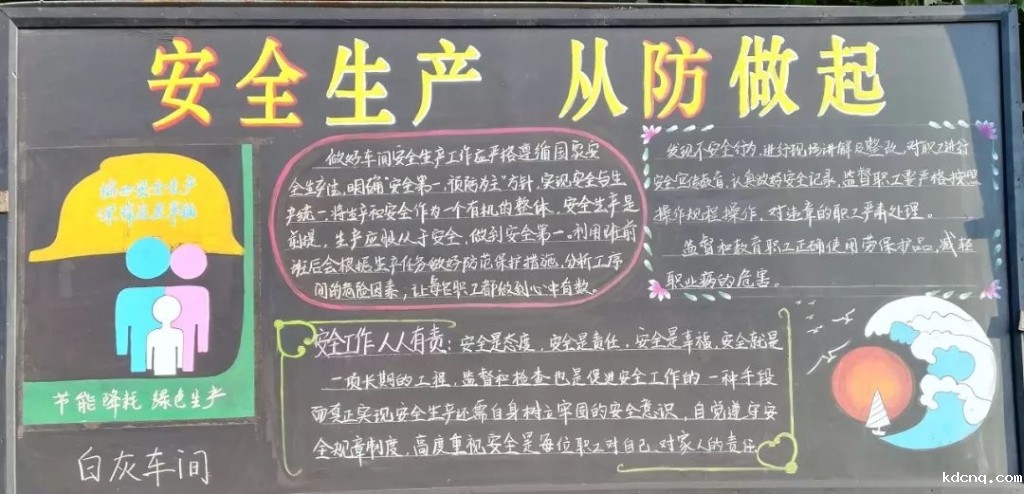 安全生产 从防做起
做好车间安全生产工作应严格遵循国家安
全生产法,明确"安全第一,预防为主"方针,实现安全与生
产统一,将生产和安全作为一个有机的整体,安全生产是
前提,生产应服从于安全,做到安全第一。利用班前
班后会根据生产任务做好防范保护措施,分析工序
间的危险因素,让每名职工都做到心中有数。
发现不安全行为,进行现场讲解及整改,对职工进行
安全宣传教育,认真做好安全记录,监督职工要严格按照
操作规程操作,对违章的职工严肃处理。
监督和教育职工正确使用劳保护品,减轻
职业病的危害。
安全生产
节能降耗 绿色生产
白灰车间
安全工作人人有责:安全是态度,安全是责任,安全是幸福,安全就是
一项长期的工程,监督和检查也是促进安全工作的一种手段
而真正实现安全生产还需自身树立牢固的安全意识,自觉遵守安
全规章制度,高度重视安全是每位职工对自己、对家人的责任
kdcnq.com